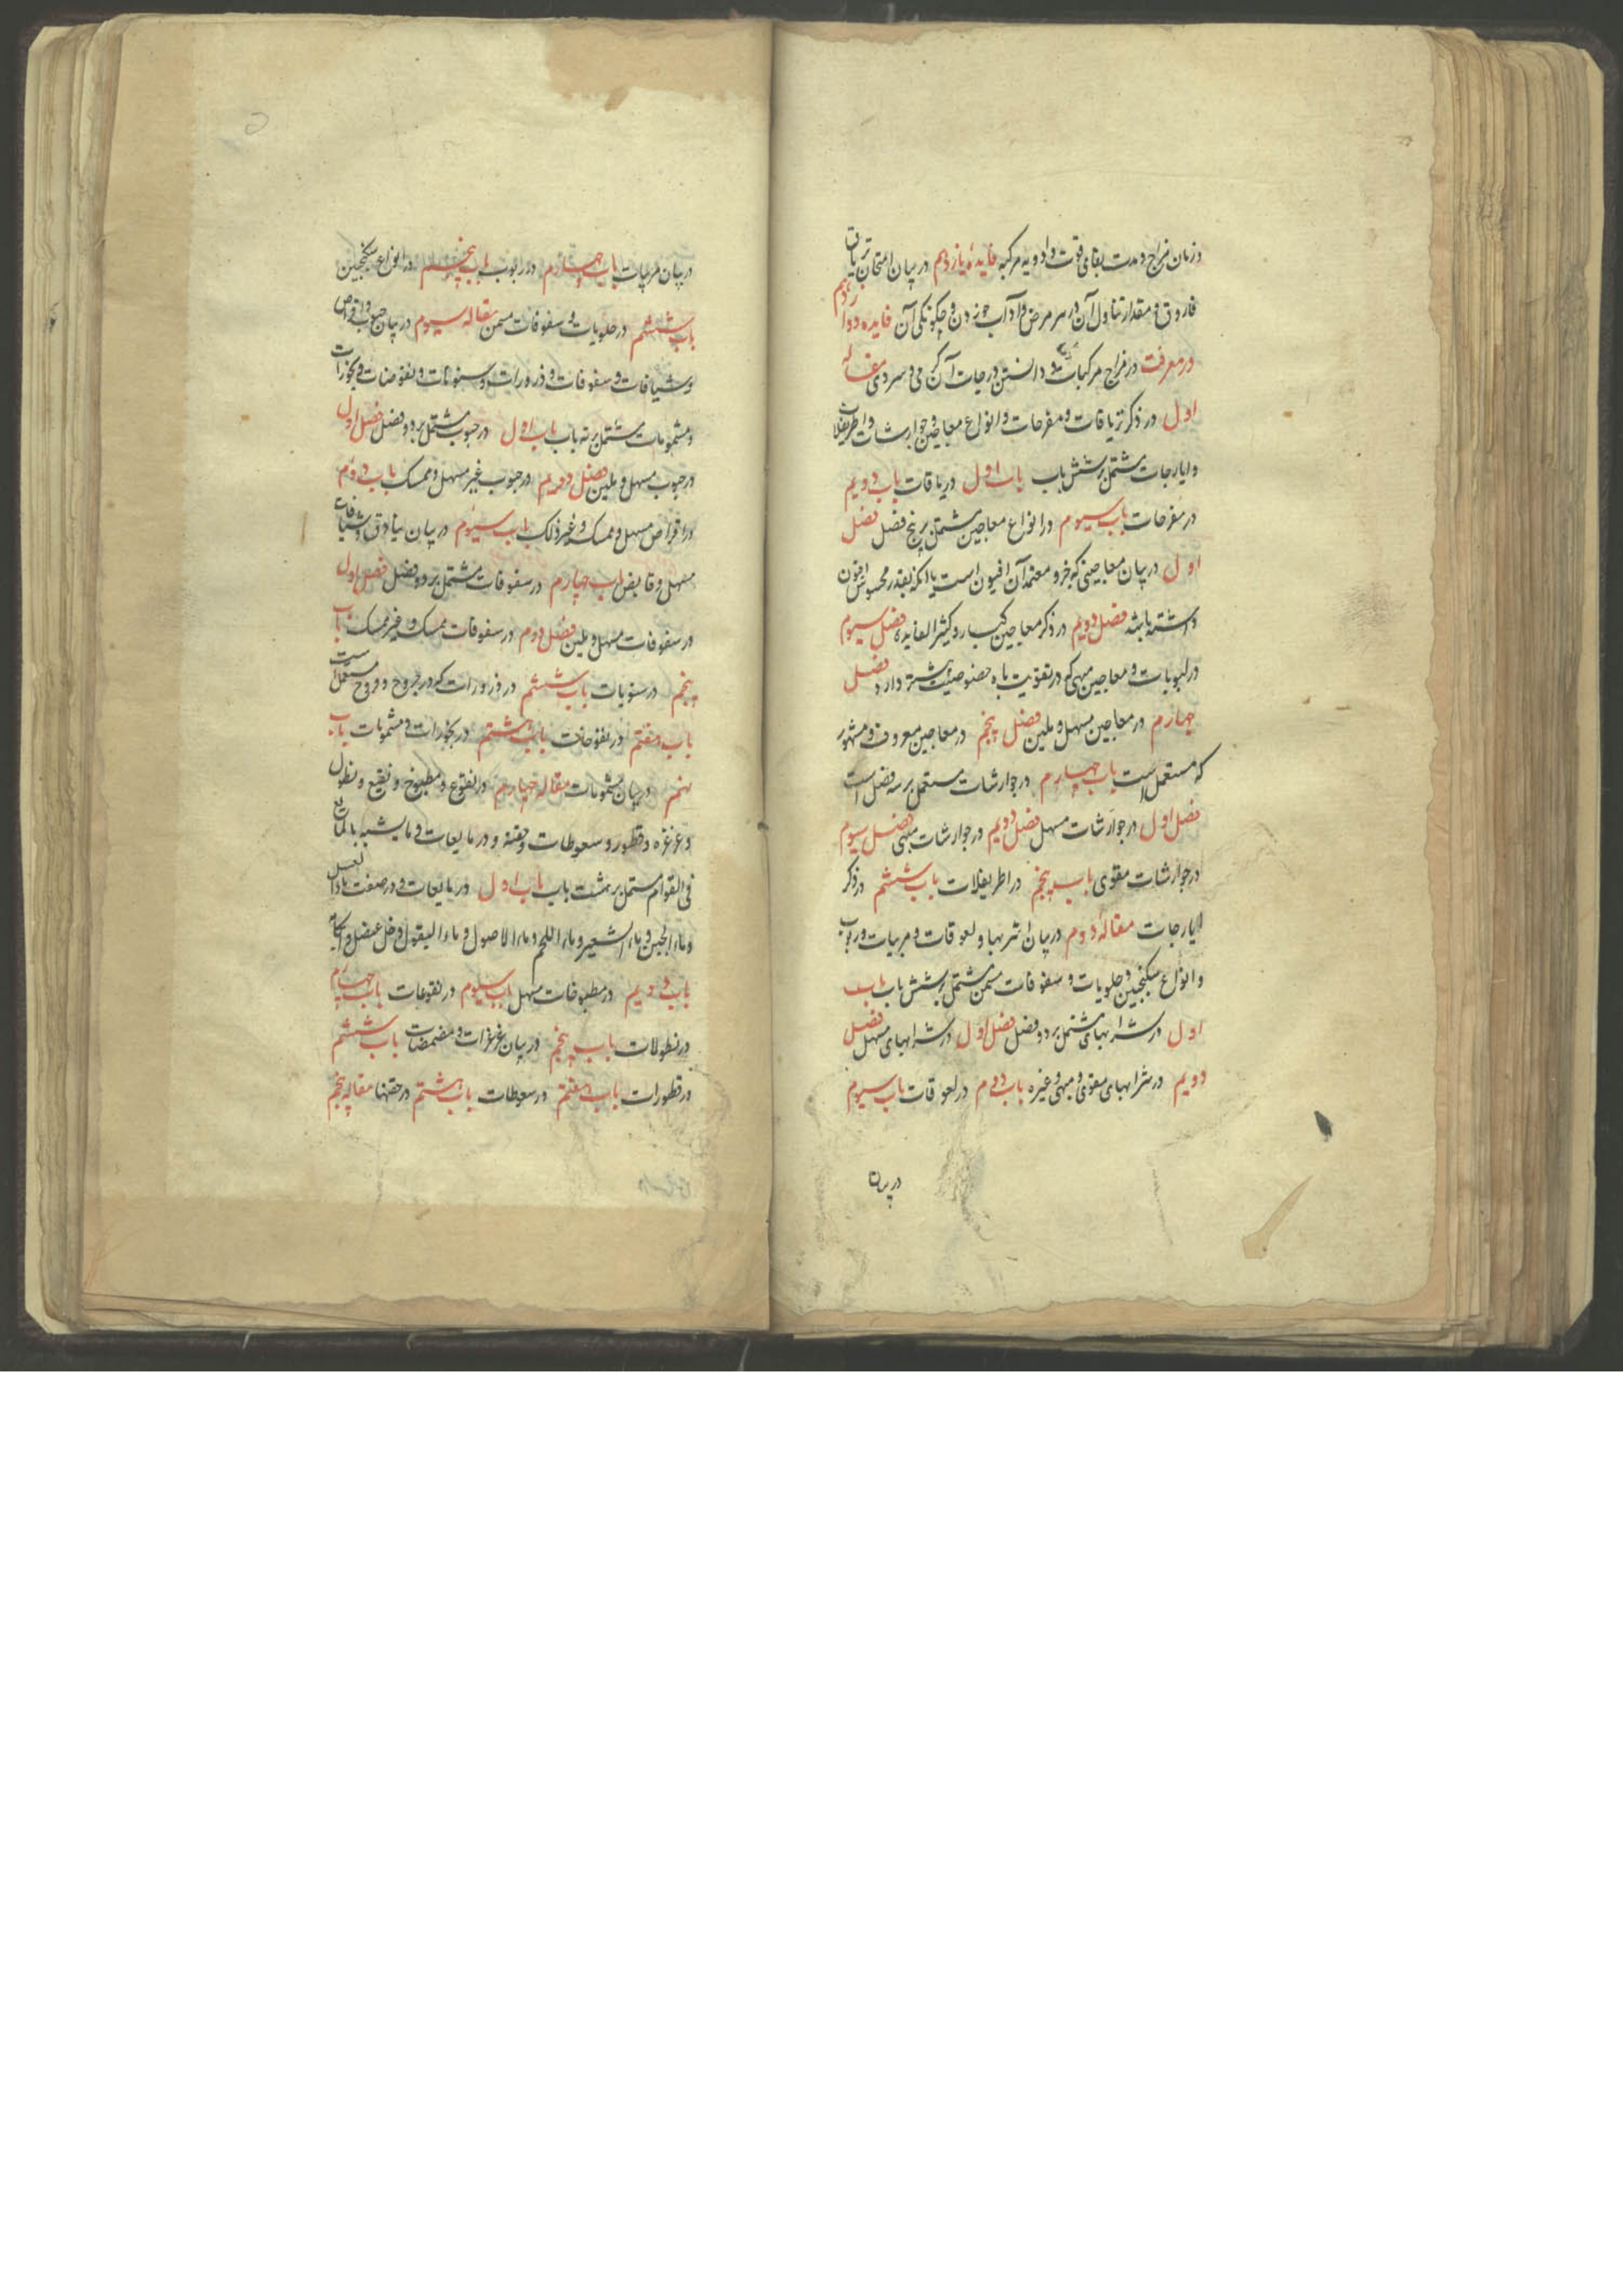 و زمان مزاج و مدت بقای قوت ادویه مرکبه فایدهٔ یازدهم در بیان امتحان تریاق
فاروق و مقدار تناول آن در هر مرض و آداب خوردن و چکونکی آن فایده دوازدهم
در معرفت در مزاج مرکبات و دانستن درجات آن کرمی و سردی مقاله
اول در ذکر تریاقات و مفرحات و انواع معاجین و جوارشات و اطریفلات
و ایارجات مشتمل بر شش باب باب اول در یاقات باب دویم
در مفرحات باب سیوم در انواع معاجین مشتمل بر پنج فصل فصل
اول در بیان معاجینی که جزو معتمد آن افیون است یا انکه بقدر محسوس افیون
داشته باشد فصل دویم در ذکر معاجین کبار و کثیر الفایده فصل سیوم
در لبوبات و معاجین مبهی که در تقویت باه خصوصیت بیشتر دارد فصل
چهارم در معاجین مسهل و ملین فصل پنجم در معاجین معروف و مشهور
که مستعمل است باب چهارم در جوارشات مستعمل بر سه فصل است
فصل اول در جوارشات مسهل فصل دویم در جوارشات مبهی فصل سیوم
در جوارشات مقوی باب پنجم در اطریفلات باب ششم در ذکر
ایارجات مقالهٔ دوم در بیان اشربها و لعوقات و مربیات و ربوب
و انواع سکنجبین و حلویات و سفوفات مسمن مشتمل بر شش باب باب
اول در شرابهای مشتمل بر دو فصل فصل اول در شرابهای مسهل فصل
دویم در شرابهای مقوی و مبهی و غیره باب دوم در لعوقات باب سیوم
در بیان
در بیان مربیات باب چهارم در ربوب باب پنجم در انواع سکنجبین
باب ششم در حلویات و سفوفات مسمن مقاله سیوم در بیان حبوب و اقراص
و شیافات و سفوفات و ذرورات و سنونات و نفوخات و بخورات
و مشمومات مشتمل بر نه باب باب اول در حبوب مشتمل بر دو فصل فصل اول
در حبوب مسهل و ملین فصل دویم در حبوب غیر مسهل و ممسک باب دوم
در اقراص مسهل و ممسک و غیر ذلک باب سیوم در بیان بنادق و شیافات
مسهل و قابض باب چهارم در سفوفات مشتمل بر دو فصل فصل اول
در سفوفات مسهل و ملین فصل دوم در سفوفات ممسک و غیر ممسک باب
پنجم در سنونات باب ششم در ذرورات که در جروح و قروح مستعمل است
باب هفتم در نفوخات باب هشتم در بخورات و مشمومات باب
نهم در بیان مشمومات مقاله چهارم در نقوع و مطبوخ و نقیع و نطول
و غرغره و قطور و سعوطات و حقنه و در مایعات و ما یشبه بالمایع
فی القوام مشتمل بر هشت باب باب اول در مایعات و در صفت ماء العسل
و ماء الجبن و ماء الشعیر و ماء اللحم و ماء الاصول و ماء البقول و خل عنصل و
باب دویم در مطبوخات مسهل باب سیوم در نقوعات باب چهارم
در نطولات باب پنجم در بیان غرغرات و مضمضات باب ششم
در قطورات باب هفتم در سعوطات باب هشتم در حقنها مقاله پنجم